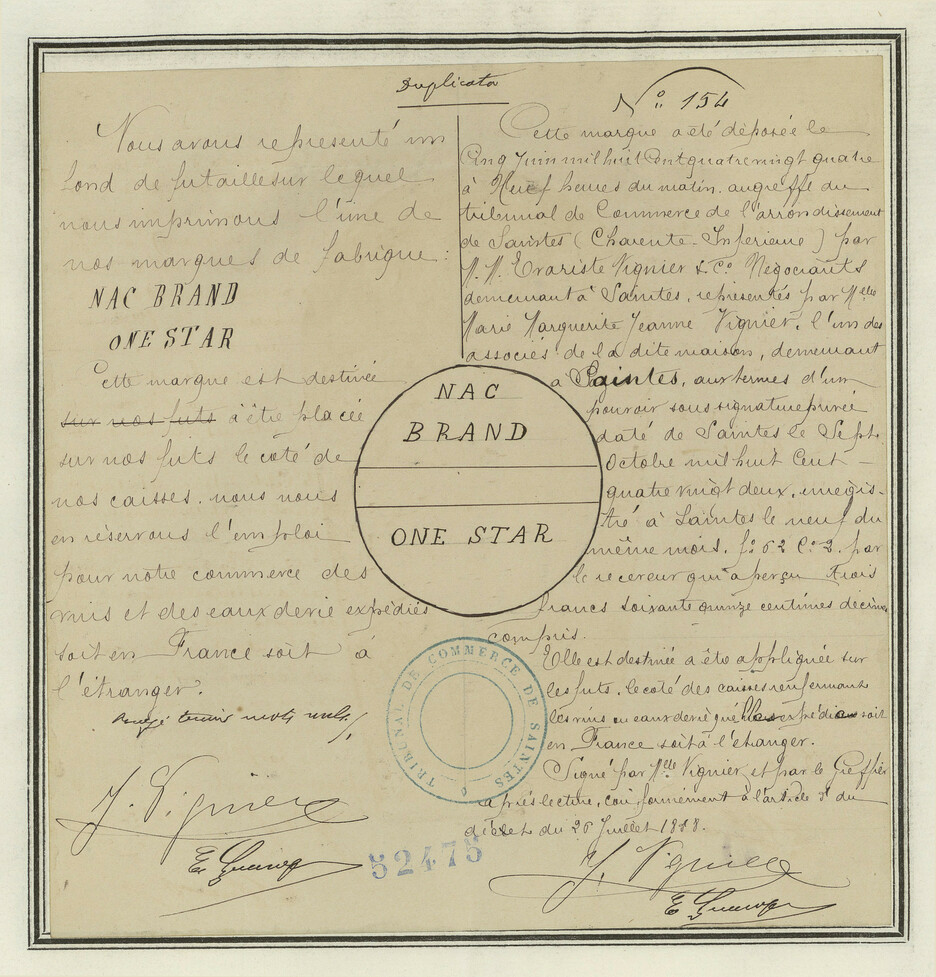 Duplicata
Nous avons représenté un
fond de futaille sur lequel
nous imprimons l'une de
nos marques de fabrique :
NAC BRAND
ONE STAR
Cette marque est destinée
sur nos futs à être placée
sur nos futs le coté de
nos caisses. nous nous
en réservons l'emploi
pour notre commerce des
vins et des eaux de vie expédiés
soit en France soit à
l'étranger.
mots nuls
J. Vignier
N° 154
Cette marque a été déposée le
Cinq Juin mil huit Cent quatre vingt quatre
à Neuf heures du matin, au greffe du
tribunal de Commerce de l'arrondissement
de Saintes (Charente-Inferieure) par
M.M. Evariste Vignier & Co. Négociants
demeurant à Saintes, représentés par Melle
Marie Marguerite Jeanne Vignier, l'un des
associés de la dite maison, demeurant
à Saintes, aux termes d'un
pouvoir sous signature privée
daté de Saintes le Sept
Octobre mil huit Cent -
quatre vingt deux, enregis-
tré à Saintes le neuf du
même mois. fo 62 Co 2. par
le receveur qui a perçu trois
francs soixante quinze centimes décimes
compris.
Elle est destinée a être appliquée sur
les futs, le coté des caisses renfermant
les vins ou eaux de vie expédiés soit
en France soit à l'étranger.
Signé par Melle Vignier et par le Greffier
après lecture, conformément à l'article 3 du
décret du 26 Juillet 1858.
J. Vignier
NAC
BRAND
ONE STAR
TRIBUNAL DE COMMERCE DE SAINTES
52475